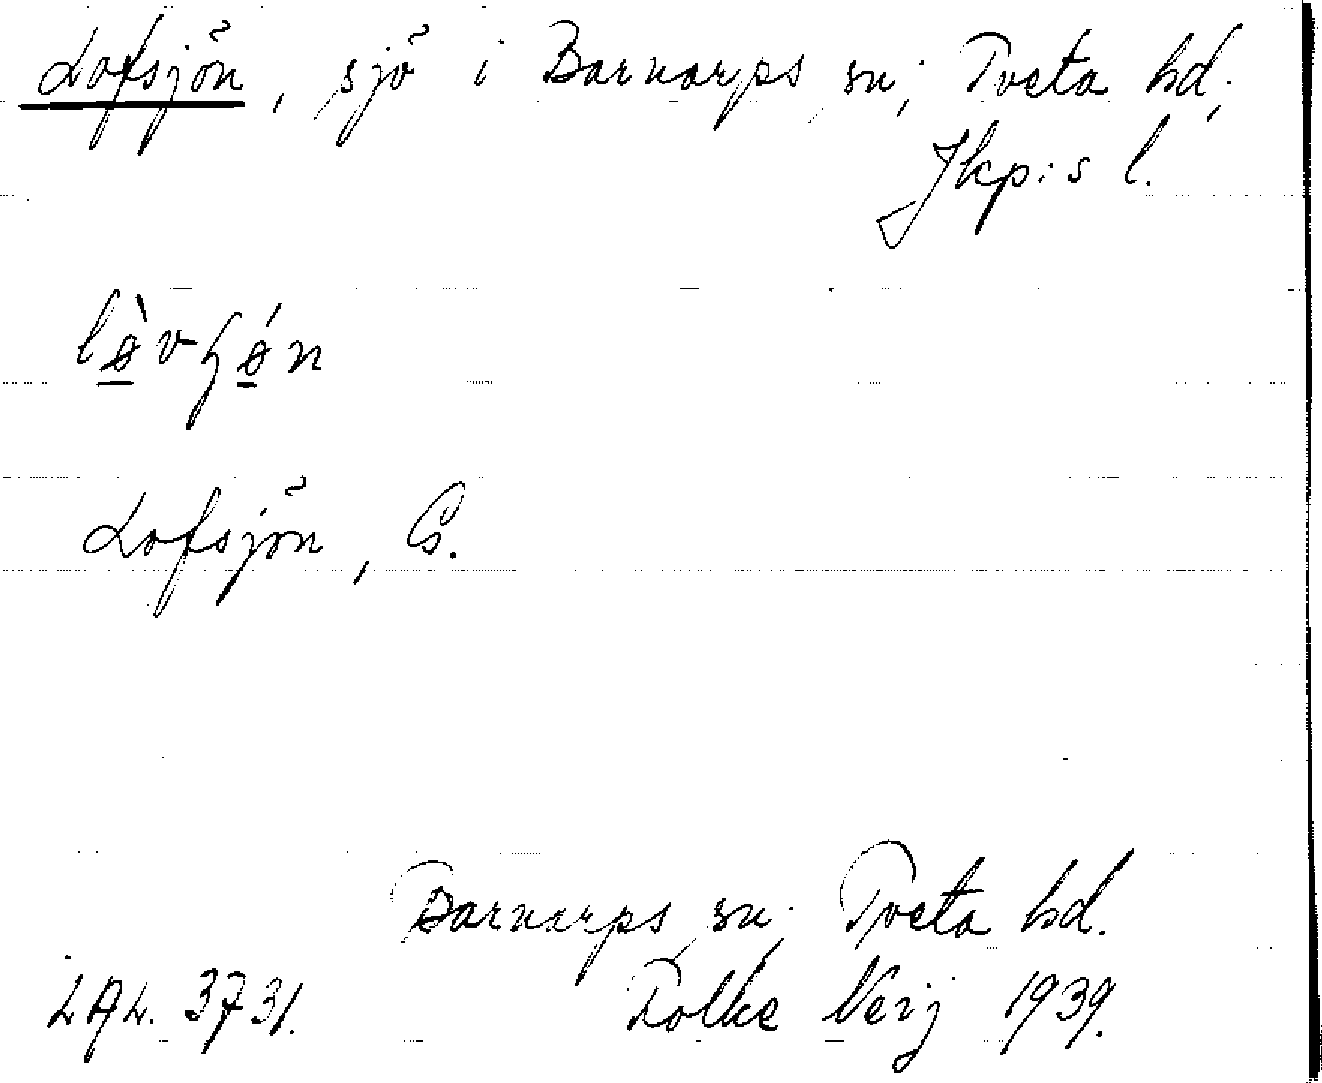 Lofsjön, sjö i Barnarps sn; Tveta hd;
Jkp:s l.
Lofsjön, G.
Barnarps sn; Tveta hd.
LAL. 3731. Folke Neij 1939.